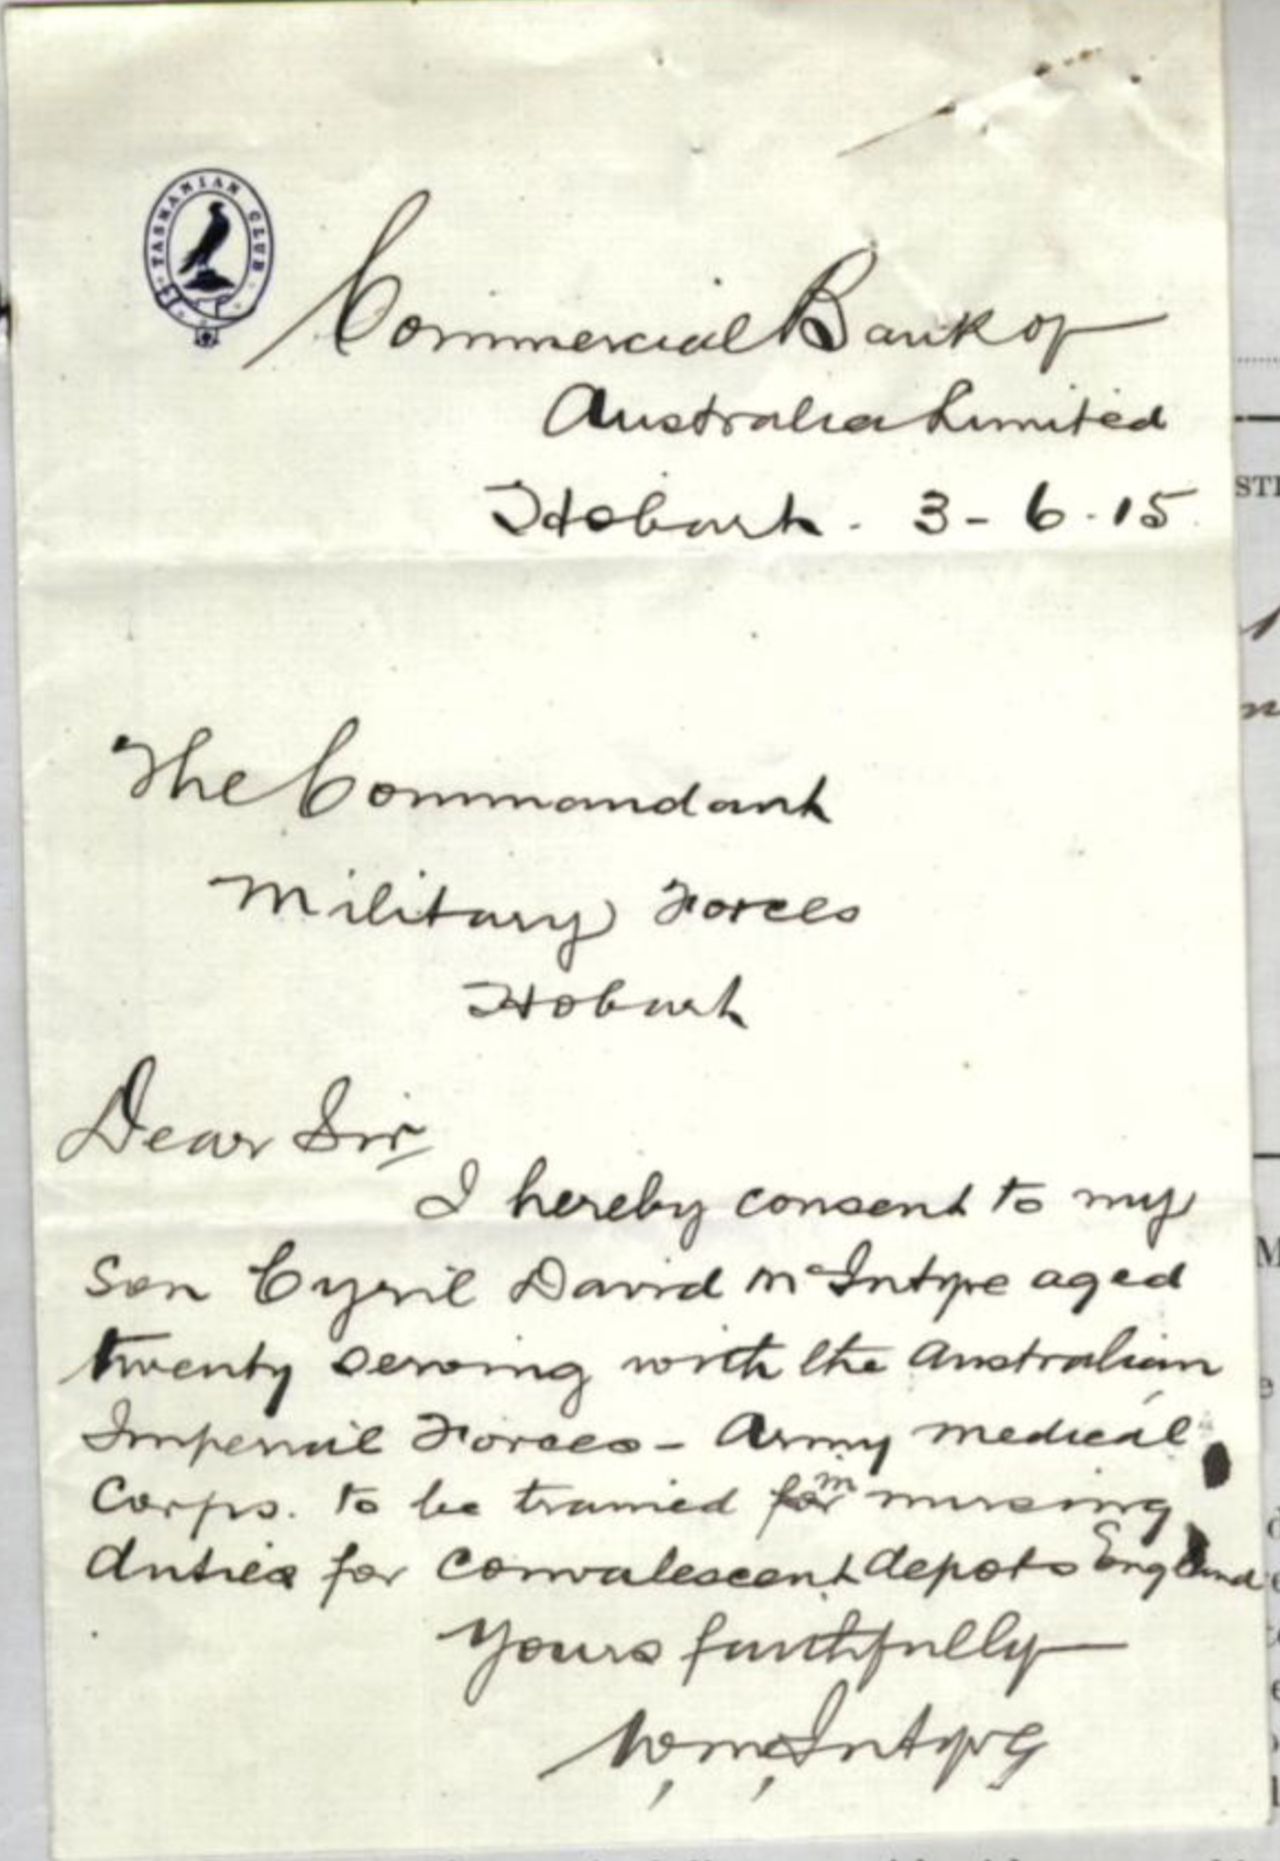 TASMANIAN CLUB
Commercial Bank of
Australia Limited
Hobart. 3-6.15
The Commandant
Military Forces
Hobart
Dear Sir,
I hereby consent to my
son Cyril David McIntyre aged
twenty serving with the Australian
Imperial Forces - Army medical
Corps. to be trained for in nursing
duties for convalescent depots England
Yours faithfully
W McIntyre